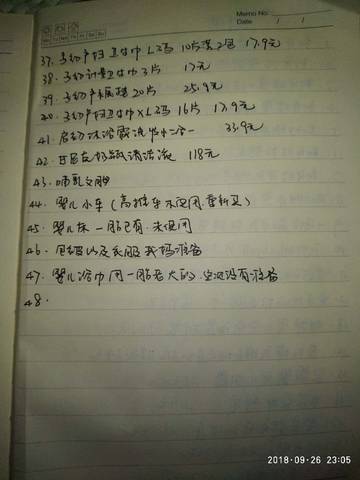 Memo No.
Mo Tu We Th Fr Sa Su
Date / /
37. 子初产妇卫生巾 L码 10片装2包 17.9元
38. 子初计量卫生巾3片 17元
39. 子初产褥垫20片 25.9元
40. 子初产妇卫生巾XL码 16片 17.9元
41. 启初沐浴露洗发水二合一 33.9元
42. 奶瓶清洁液 118元
43. 哺乳文胸
44. 婴儿小车(高推车不实用.重新买)
45. 婴儿床 一胎已有.未使用
46. 包被以及衣服 我妈准备
47. 婴儿浴巾用一胎老大的.还没有准备
48.
2018-09-26 23:05